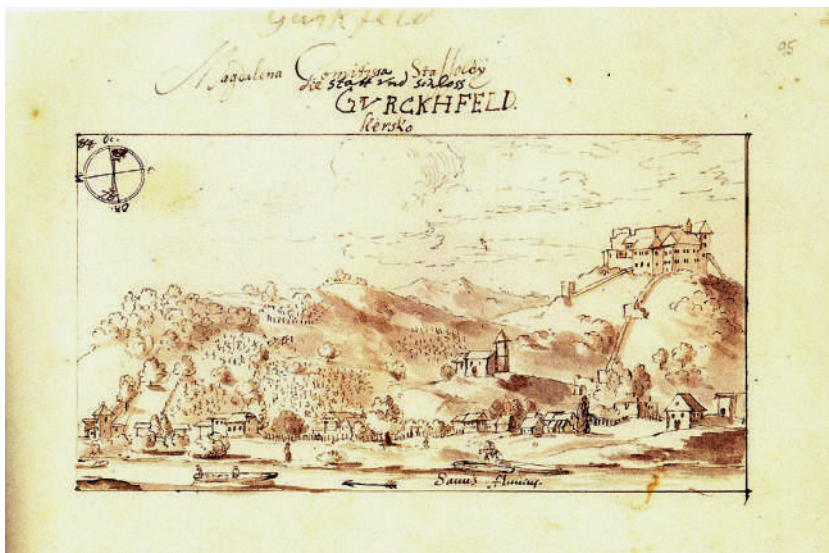 Gurkfeld
95
Magdalena Comitissa
die Statt und Schloss
GVRCKHFELD.
Kersko
Oc.
Or.
Sauus Fluuius.